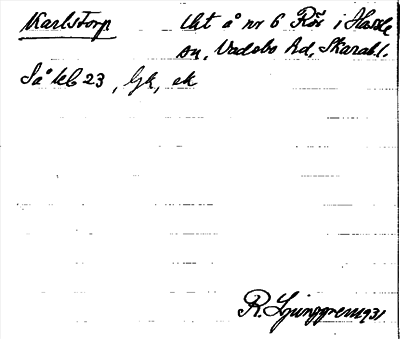 Karlstorp Lht å nr 6 Rör i Hassle
sn, Vadsbo hd, Skarabl.
Så kb 23, Gk, ek
R. Ljunggren 1931